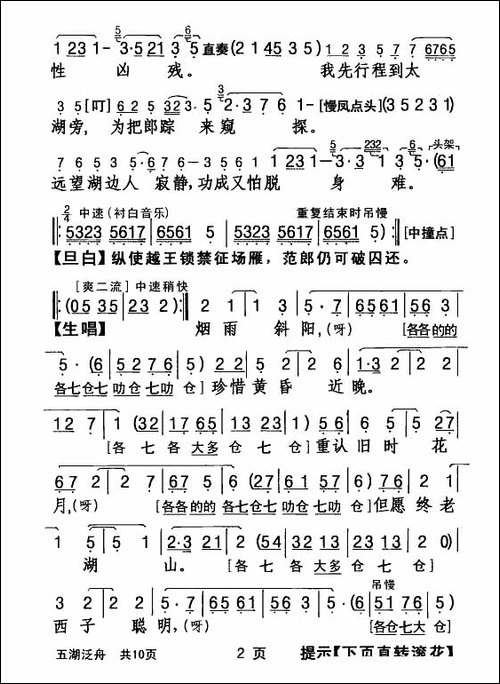 1 2 3 1 - 3·5 2 1 3 5 直奏 (2 1 4 5 3 5) 1 2 3 5 7 7 6 7 6 5
性 凶 残。 我先行程到太
3 5 [叮] 6 2 5 3 2 3·5 2·3 7 6 1 - [慢凤点头] (3 5 2 3 1)
湖旁, 为把郎踪 来窥 探。
7 6 5 3 5·6 7 6 - 3 5 6 1 1 2 3 1 - 3·3 1 3 5·(6 1 头架
远望湖边人 寂静,功成又怕脱 身 难。
2/4 中速(衬白音乐) 重复结束时吊慢
‖: 5323 5617 | 6561 5617 | 6561 5323 | 5323 5) :‖ [中撞点]
【旦白】纵使越王锁禁征场雁，范郎仍可破囚还。
[爽二流] 中速稍快
‖: (0 5 3 5 | 2 3 2 ) :‖ 2 1 | 1 3 | 5·7 | 6 5 6 1 | 5 6 3 |
【生唱】 烟 雨 斜 阳,(呀) [各各的的
5·(6 | 5 2 7 6 | 5) 5 | 2 2 | 2 2 | 1·3 2 |
各七仓七 叻仓 七叻 仓] 珍惜黄昏 近晚。
1 2 7 | 1 (3 2 | 1 7 6 5 | 1 3 2 3 | 1) 5 | 6 5 | 5 2 7 |
[各 七 各 大多 仓 七 仓] 重认旧时 花
6 7 2 | 2 7 | 6 7 6 5 | 6 (2 7 | 6 1 5 7 | 6) 7 6 | 2 1 |
月,(呀) [各各的的 各七仓七 叻仓七叻 仓] 但愿终老
1 5 | 5 1 | 2·3 2 1 | 2 (5 4 | 3 2 1 3 | 2 3 5 4 | 2) 0 |
湖 山。 [各 七 各 大多 仓 七 仓]
吊慢
3 2 | 2 2 | 5·7 | 6 5 6 1 | 5 6 3 | 5·(6 | 5 1 7 6 |
西子 聪明,(呀) [各仓七大
五湖泛舟 共10页 2 页 提示【下页直转滚花】